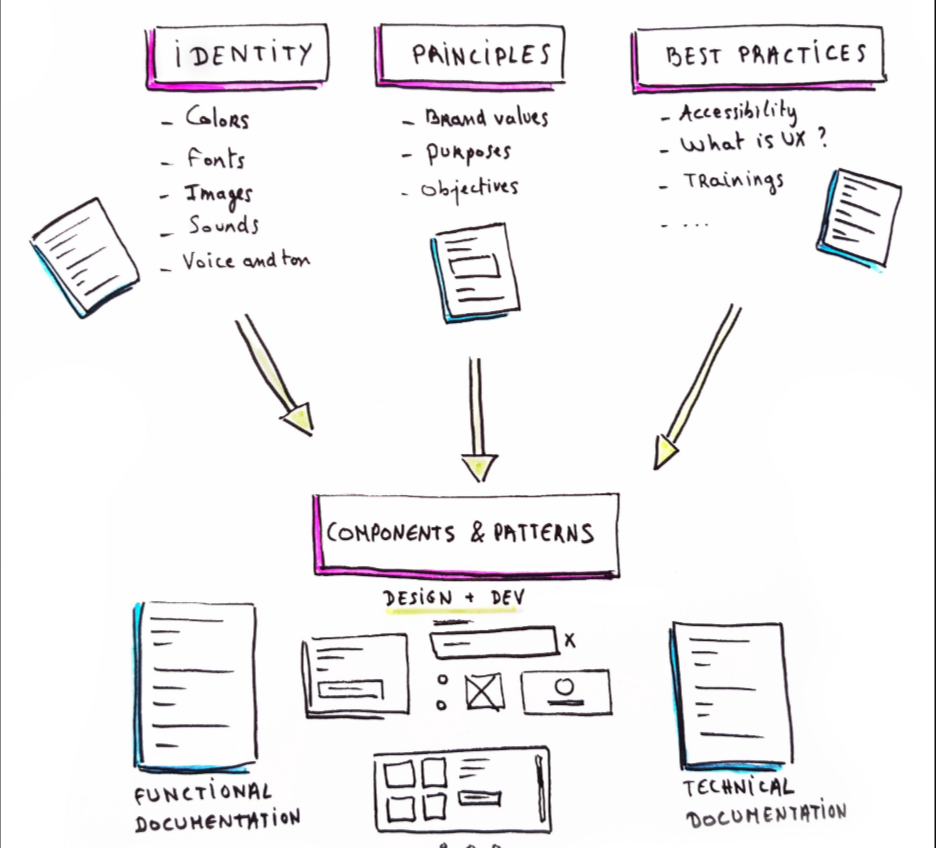 IDENTITY
- Colors
- Fonts
- Images
- Sounds
- Voice and ton
PRINCIPLES
- Brand values
- Purposes
- Objectives
BEST PRACTICES
- Accessibility
- What is UX ?
- Trainings
- ....
COMPONENTS & PATTERNS
DESIGN + DEV
X
FUNCTIONAL
DOCUMENTATION
TECHNICAL
DOCUMENTATION